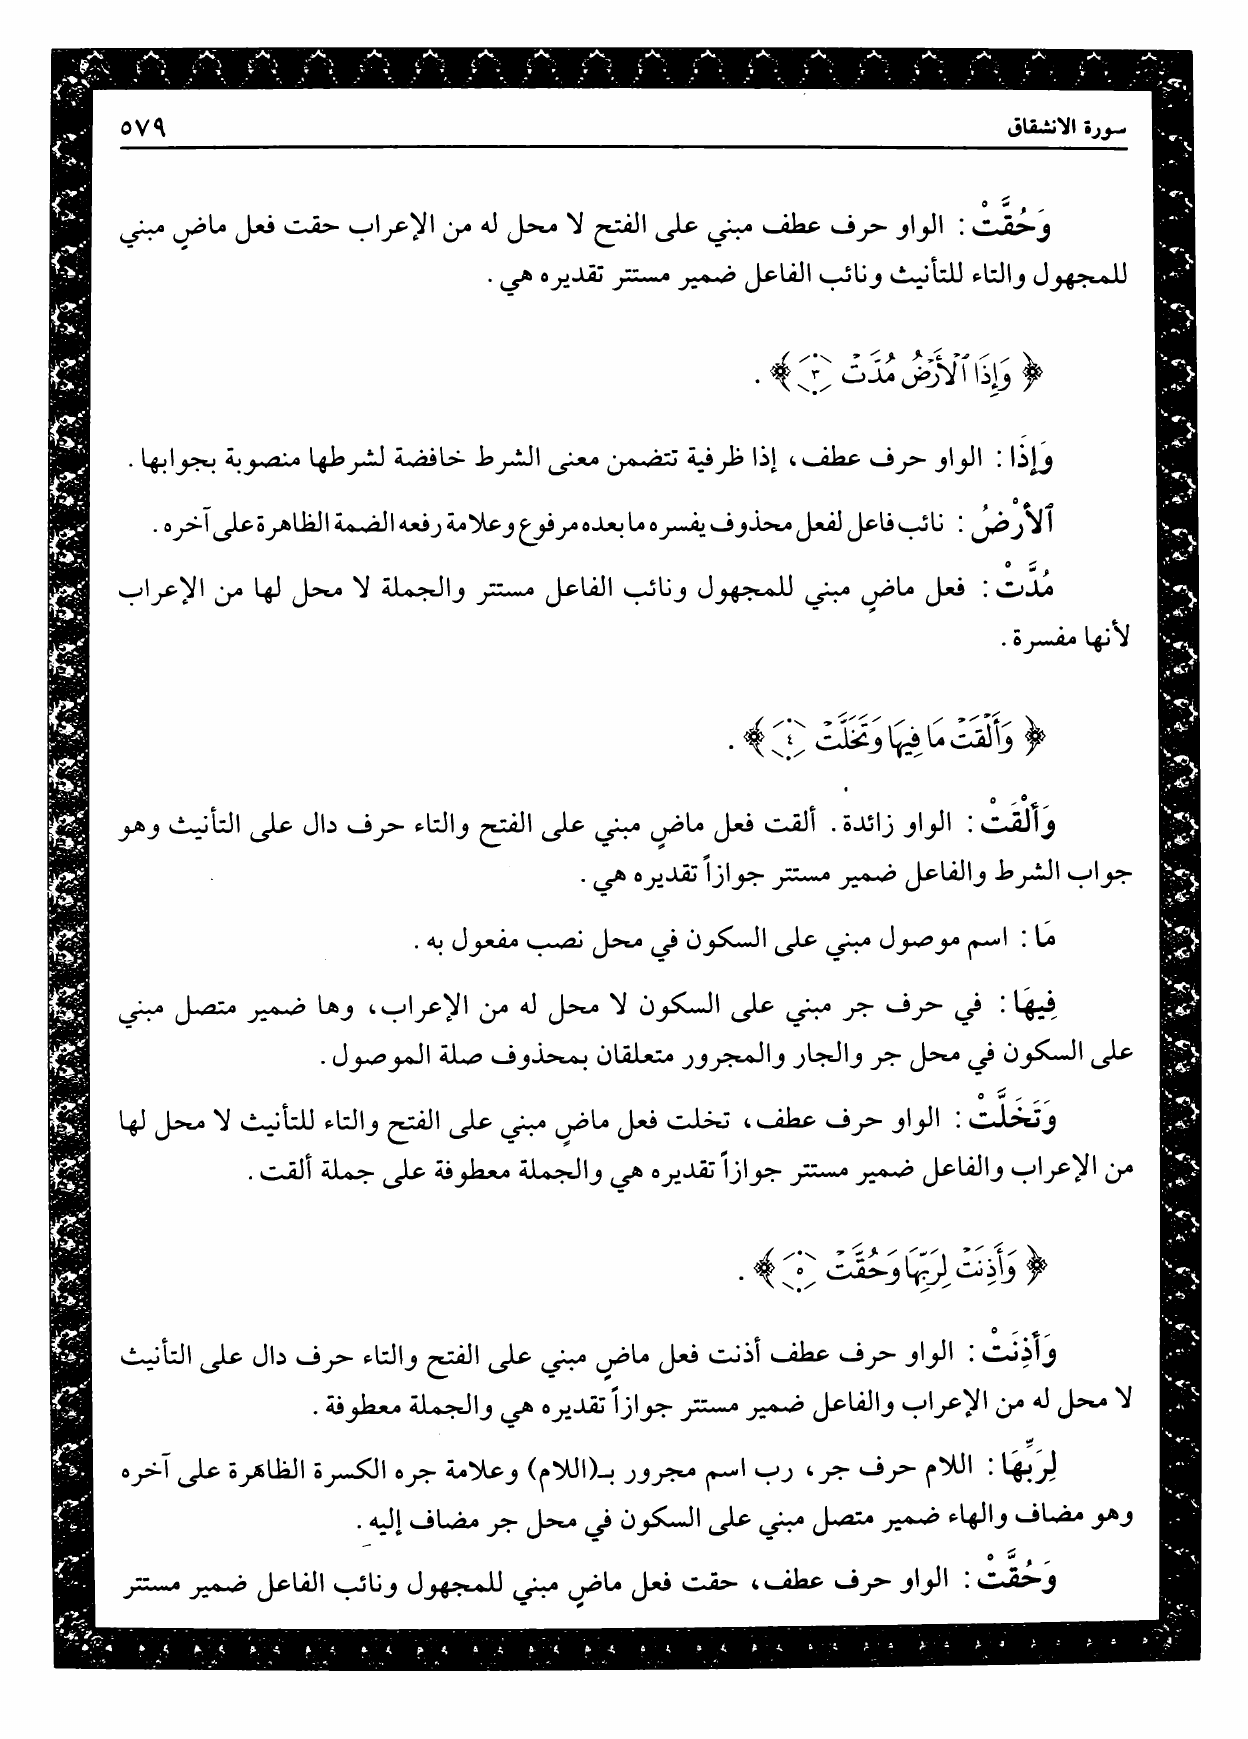 سورة الانشقاق ٥٧٩
وَحُقَّتْ : الواو حرف عطف مبني على الفتح لا محل له من الإعراب حقت فعل ماضٍ مبني
للمجهول والتاء للتأنيث ونائب الفاعل ضمير مستتر تقديره هي .
﴿ وَإِذَا ٱلْأَرْضُ مُدَّتْ ٣ ﴾ .
وَإِذَا : الواو حرف عطف، إذا ظرفية تتضمن معنى الشرط خافضة لشرطها منصوبة بجوابها .
ٱلأرْضُ : نائب فاعل لفعل محذوف يفسره ما بعده مرفوع وعلامة رفعه الضمة الظاهرة على آخره .
مُدَّتْ : فعل ماضٍ مبني للمجهول ونائب الفاعل مستتر والجملة لا محل لها من الإعراب
لأنها مفسرة .
﴿ وَأَلْقَتْ مَا فِيهَا وَتَخَلَّتْ ٤ ﴾ .
وَأَلْقَتْ : الواو زائدة . ألقت فعل ماضٍ مبني على الفتح والتاء حرف دال على التأنيث وهو
جواب الشرط والفاعل ضمير مستتر جوازاً تقديره هي .
مَا : اسم موصول مبني على السكون في محل نصب مفعول به .
فِيهَا : في حرف جر مبني على السكون لا محل له من الإعراب، وها ضمير متصل مبني
على السكون في محل جر والجار والمجرور متعلقان بمحذوف صلة الموصول .
وَتَخَلَّتْ : الواو حرف عطف، تخلت فعل ماضٍ مبني على الفتح والتاء للتأنيث لا محل لها
من الإعراب والفاعل ضمير مستتر جوازاً تقديره هي والجملة معطوفة على جملة ألقت .
﴿ وَأَذِنَتْ لِرَبِّهَا وَحُقَّتْ ٥ ﴾ .
وَأَذِنَتْ : الواو حرف عطف أذنت فعل ماضٍ مبني على الفتح والتاء حرف دال على التأنيث
لا محل له من الإعراب والفاعل ضمير مستتر جوازاً تقديره هي والجملة معطوفة .
لِرَبِّهَا : اللام حرف جر، رب اسم مجرور بـ(اللام) وعلامة جره الكسرة الظاهرة على آخره
وهو مضاف والهاء ضمير متصل مبني على السكون في محل جر مضاف إليه .
وَحُقَّتْ : الواو حرف عطف، حقت فعل ماضٍ مبني للمجهول ونائب الفاعل ضمير مستتر